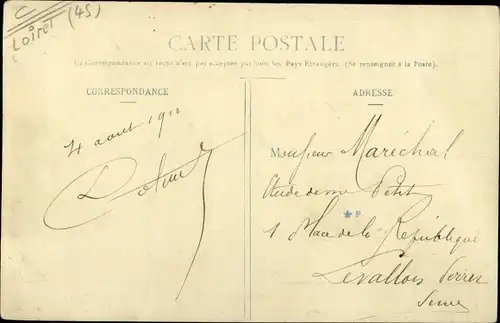 C
LOIRET (45)
CARTE POSTALE
La Correspondance au recto n'est pas acceptée par tous les Pays Étrangers. (Se renseigner à la Poste).
CORRESPONDANCE
ADRESSE
4 aout 1911
Monsieur Maréchal
Petit
★ P
1 Place de la République
Levallois Perret
Seine